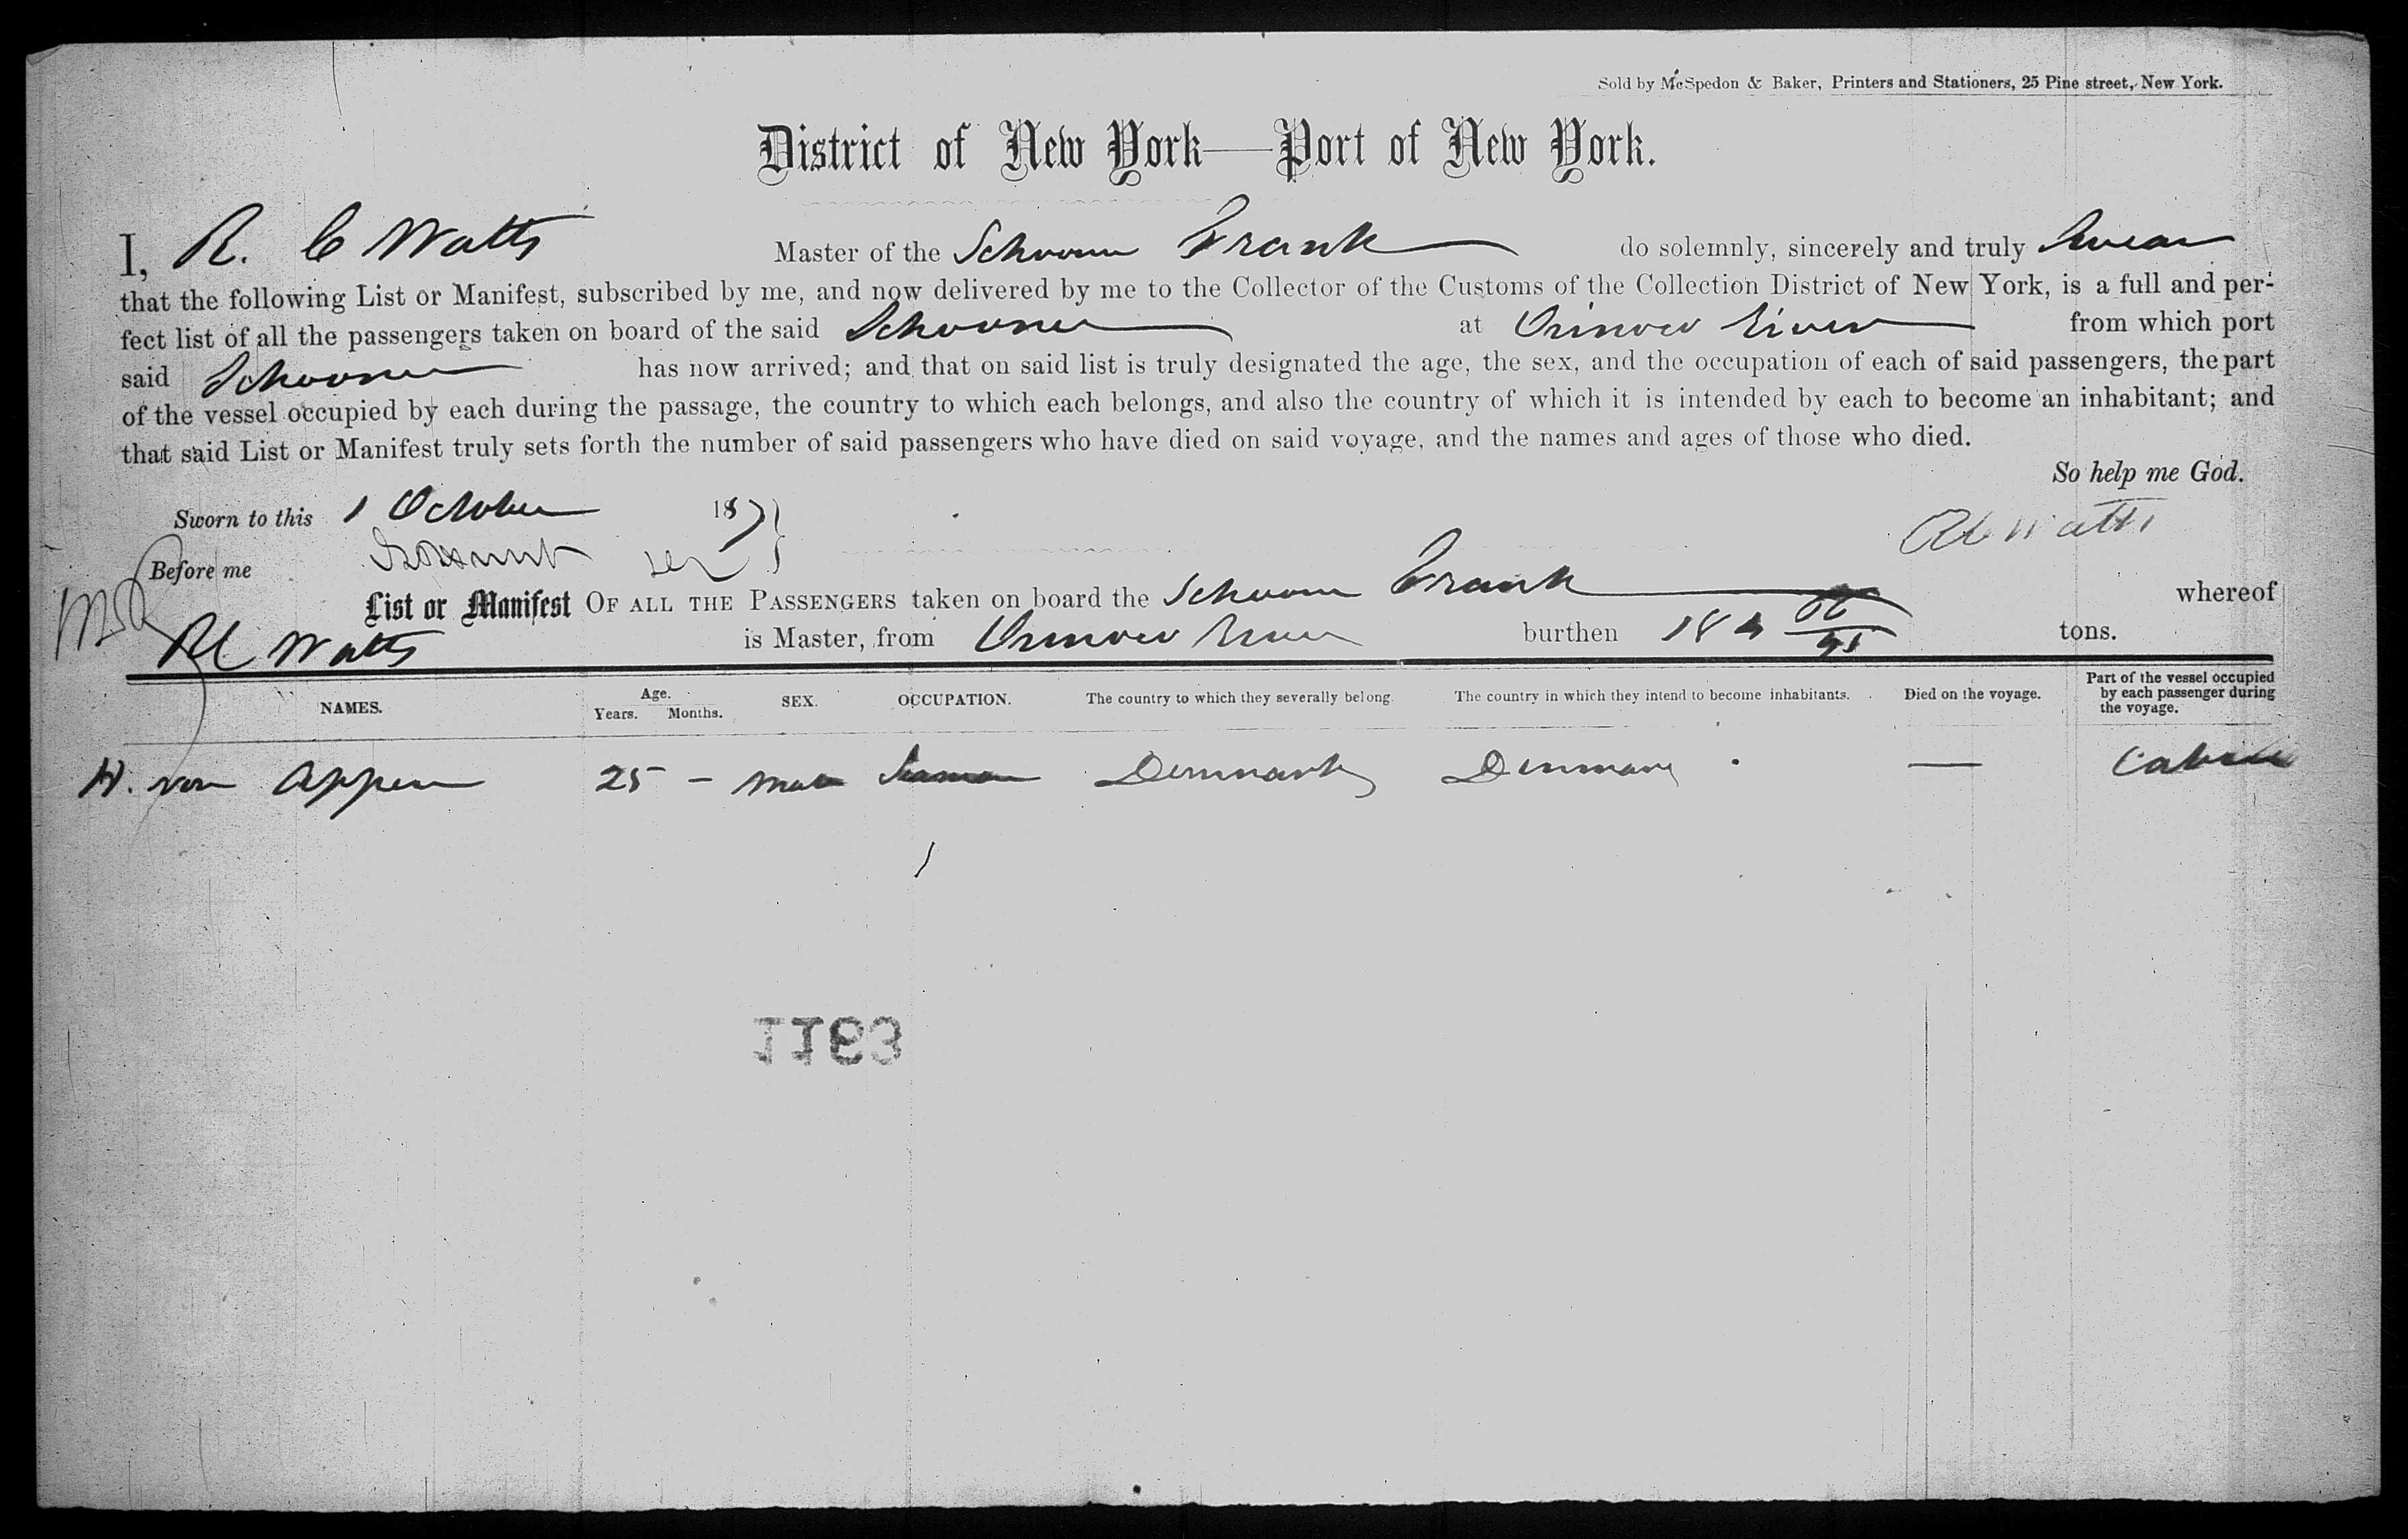 Sold by McSpedon & Baker, Printers and Stationers, 25 Pine street, New York.
District of New York—Port of New York.
I, R. C Watts Master of the Schooner Frank do solemnly, sincerely and truly Swear
that the following List or Manifest, subscribed by me, and now delivered by me to the Collector of the Customs of the Collection District of New York, is a full and per-
fect list of all the passengers taken on board of the said Schooner at Orinoco River from which port
said Schooner has now arrived; and that on said list is truly designated the age, the sex, and the occupation of each of said passengers, the part
of the vessel occupied by each during the passage, the country to which each belongs, and also the country of which it is intended by each to become an inhabitant; and
that said List or Manifest truly sets forth the number of said passengers who have died on said voyage, and the names and ages of those who died.
So help me God.
Sworn to this 1 October 18
R C Watts
Before me
List or Manifest OF ALL THE PASSENGERS taken on board the Schooner Frank whereof
R C Watts is Master, from Orinoco River burthen tons.
NAMES. Age. Years. Months. SEX. OCCUPATION. The country to which they severally belong. The country in which they intend to become inhabitants. Died on the voyage. Part of the vessel occupied by each passenger during the voyage.
H. von Appen 25 – Male Seaman Denmark Denmark — Cabin
1
1163